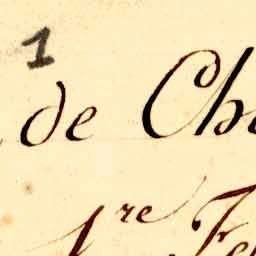 1
de Ch
1re